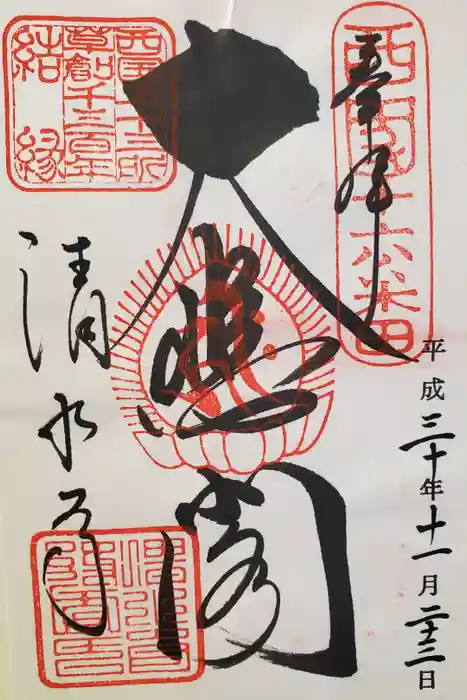 奉拝
西国十六番
平成三十年十一月二十三日
大悲閣
清水寺
西国三十三所
草創千三百年
結縁